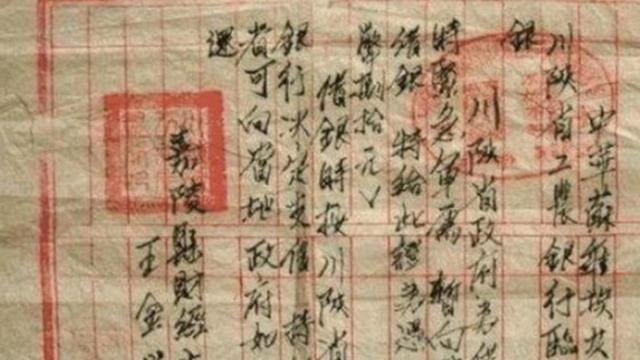 中華蘇維埃共
川陝省工農銀行臨
銀
川陝省政府為保
時緊急軍需 暫向
借銀 特給此證為憑
幣捌拾元
借銀時按川陝省
銀行決定兌借 持
者可向當地政府如
還
嘉陵縣財經
王金